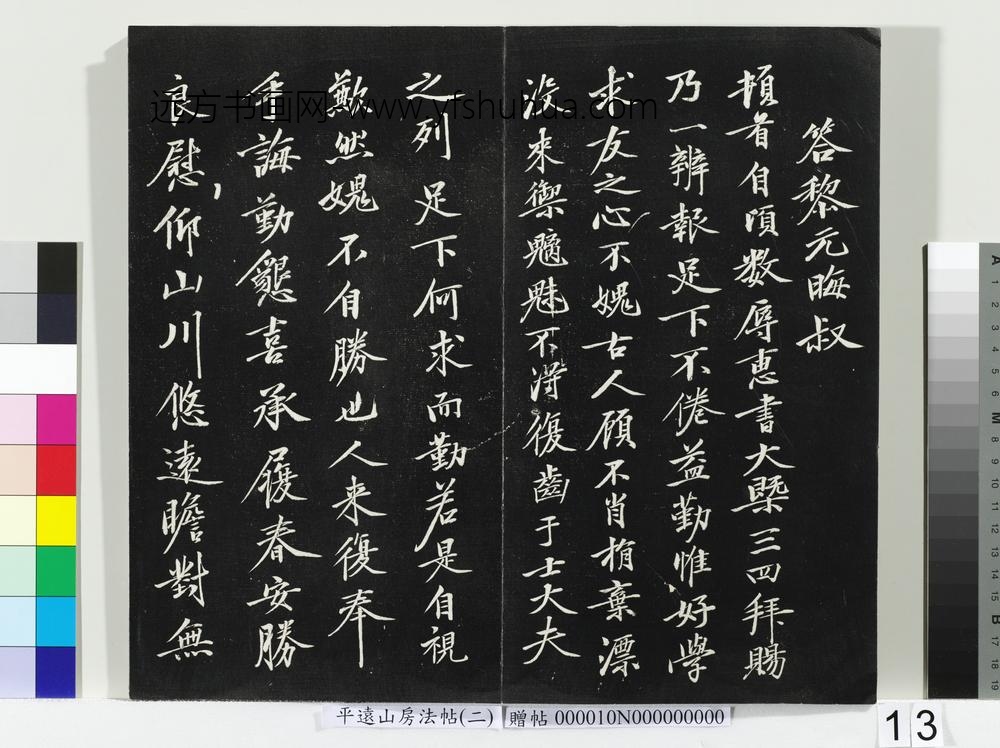 答黎元晦叔
頓首自頃数辱惠書大槩三四拜賜
乃一辨報足下不倦益勤惟好學
求友之心不媿古人顧不肖捐棄漂
沒來禦魑魅不得復齒于士大夫
之列足下何求而勤若是自視
歉然媿不自勝也人来復奉
手誨勤懇喜承履春安勝
良慰仰山川悠遠瞻對無
远方书画网 www.yfshuhua.com
平遠山房法帖(二) 贈帖 000010N000000000
13